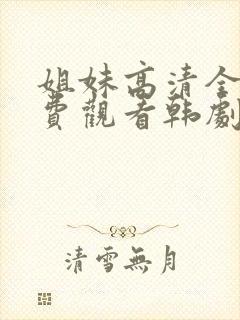 姐妹高清全
費觀看韩劇
清雪無月